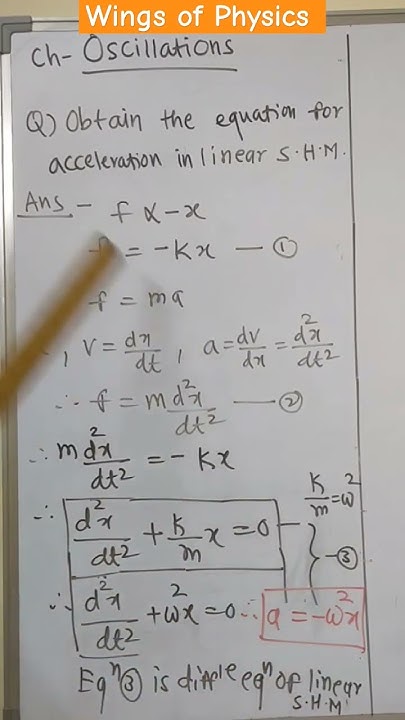 Wings of Physics
Ch- Oscillations
Q) Obtain the equation for
acceleration in linear S.H.M.
Ans - f α -x
f = -Kx — ①
f = ma
, v = dx/dt , a = dv/dx = d²x/dt²
∴ f = m d²x/dt² — ②
∴ m d²x/dt² = - Kx
K/m = ω²
∴ d²x/dt² + K/m x = 0
} - ③
∴ d²x/dt² + ω²x = 0 ∴ a = -ω²x
Eqⁿ ③ is diffle eqⁿ of linear
S.H.M